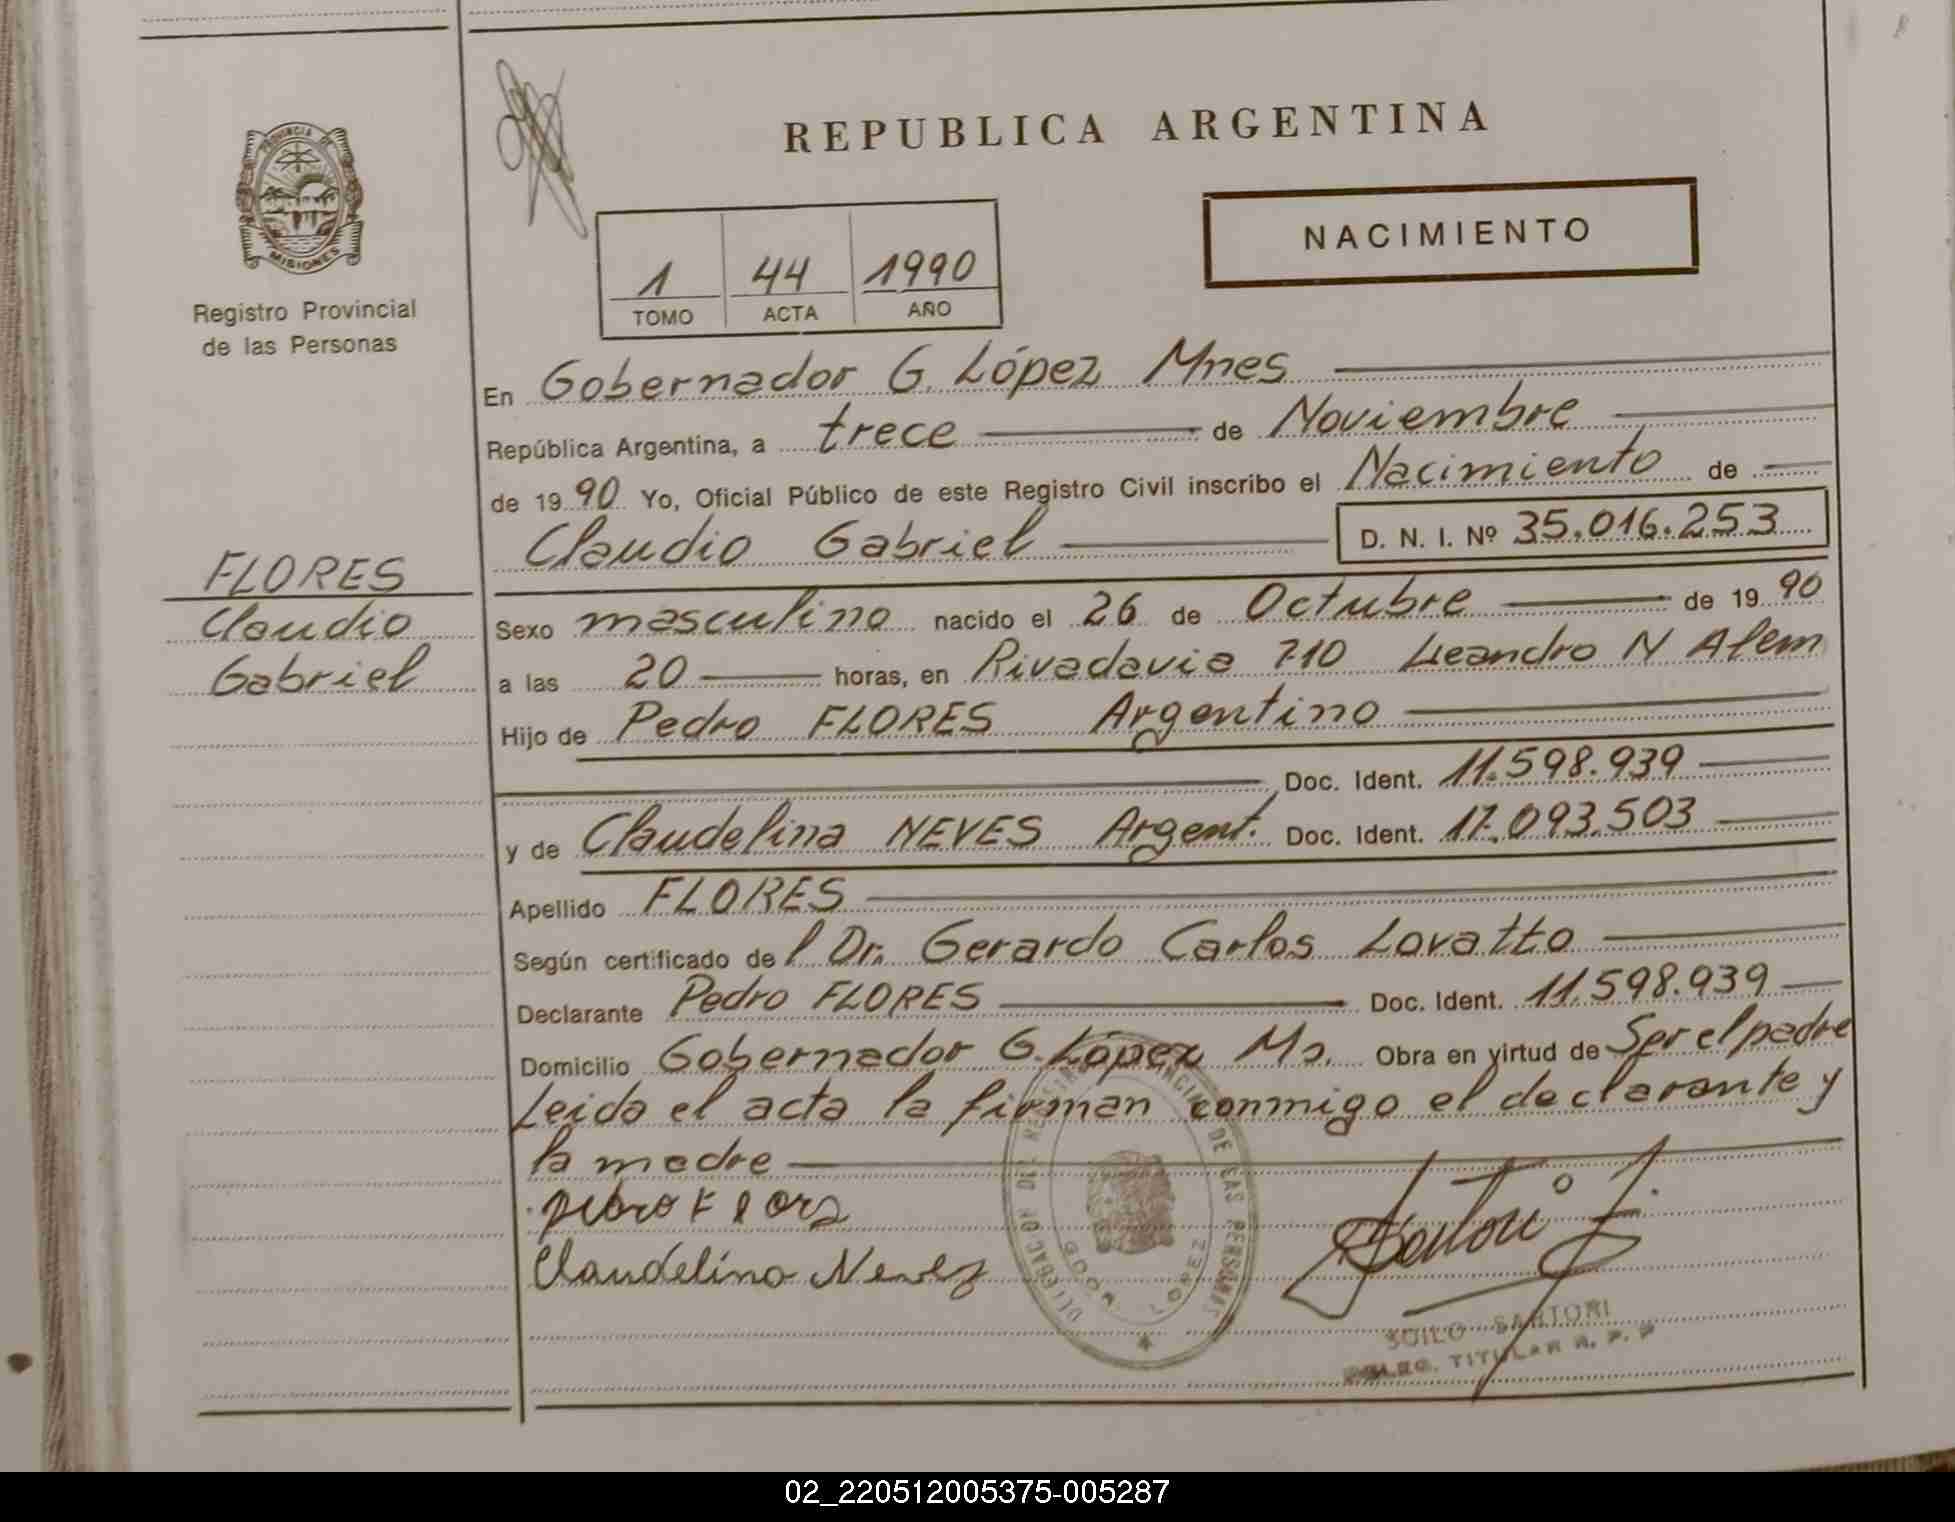 PROVINCIA DE
MISIONES
Registro Provincial
de las Personas
FLORES
Claudio
Gabriel
REPUBLICA ARGENTINA
NACIMIENTO
1 44 1990
TOMO ACTA AÑO
En Gobernador G. López Mnes
República Argentina, a trece de Noviembre
de 1990 Yo, Oficial Público de este Registro Civil inscribo el Nacimiento de
Claudio Gabriel D. N. I. Nº 35.016.253
Sexo masculino nacido el 26 de Octubre de 1990
a las 20 horas, en Rivadavia 710 Leandro N Alem
Hijo de Pedro FLORES Argentino
Doc. Ident. 11.598.939
y de Claudelina NEVES Argent. Doc. Ident. 17.093.503
Apellido FLORES
Según certificado del Dr. Gerardo Carlos Lovatto
Declarante Pedro FLORES Doc. Ident. 11.598.939
Domicilio Gobernador G. López Ms. Obra en virtud de Ser el padre
Leida el acta la firman conmigo el declarante y
la madre
Claudelina Nevez
DELEGACION DEL REGISTRO PROVINCIAL DE LAS PERSONAS
GDOR. LOPEZ
Sartori
SOILO SARTORI
DELEG. TITULAR R. P. P
02_220512005375-005287